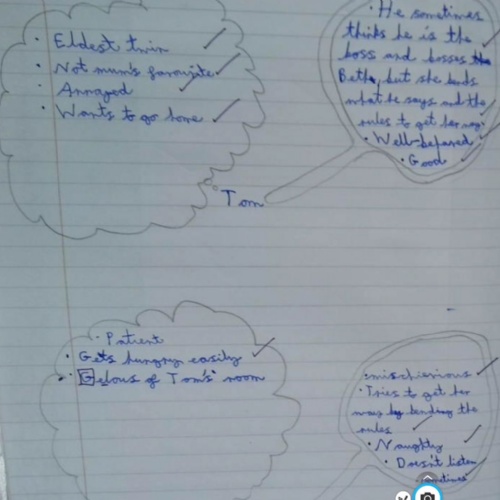 · Eldest twin
· Not mum's favourite
· Annayed
· Wants to go home
Tom
· He sometimes
thinks he is the
boss and bosses
Beth, but she bends
what he says and the
rules to get her way
· Well-behaved
· Good
· Patient
· Gets hungry easily
· Gelous of Tom's room
·mischievious
· Tries to get her
way by bending the
rules
· Naughty
· Doesn't listen
sometimes